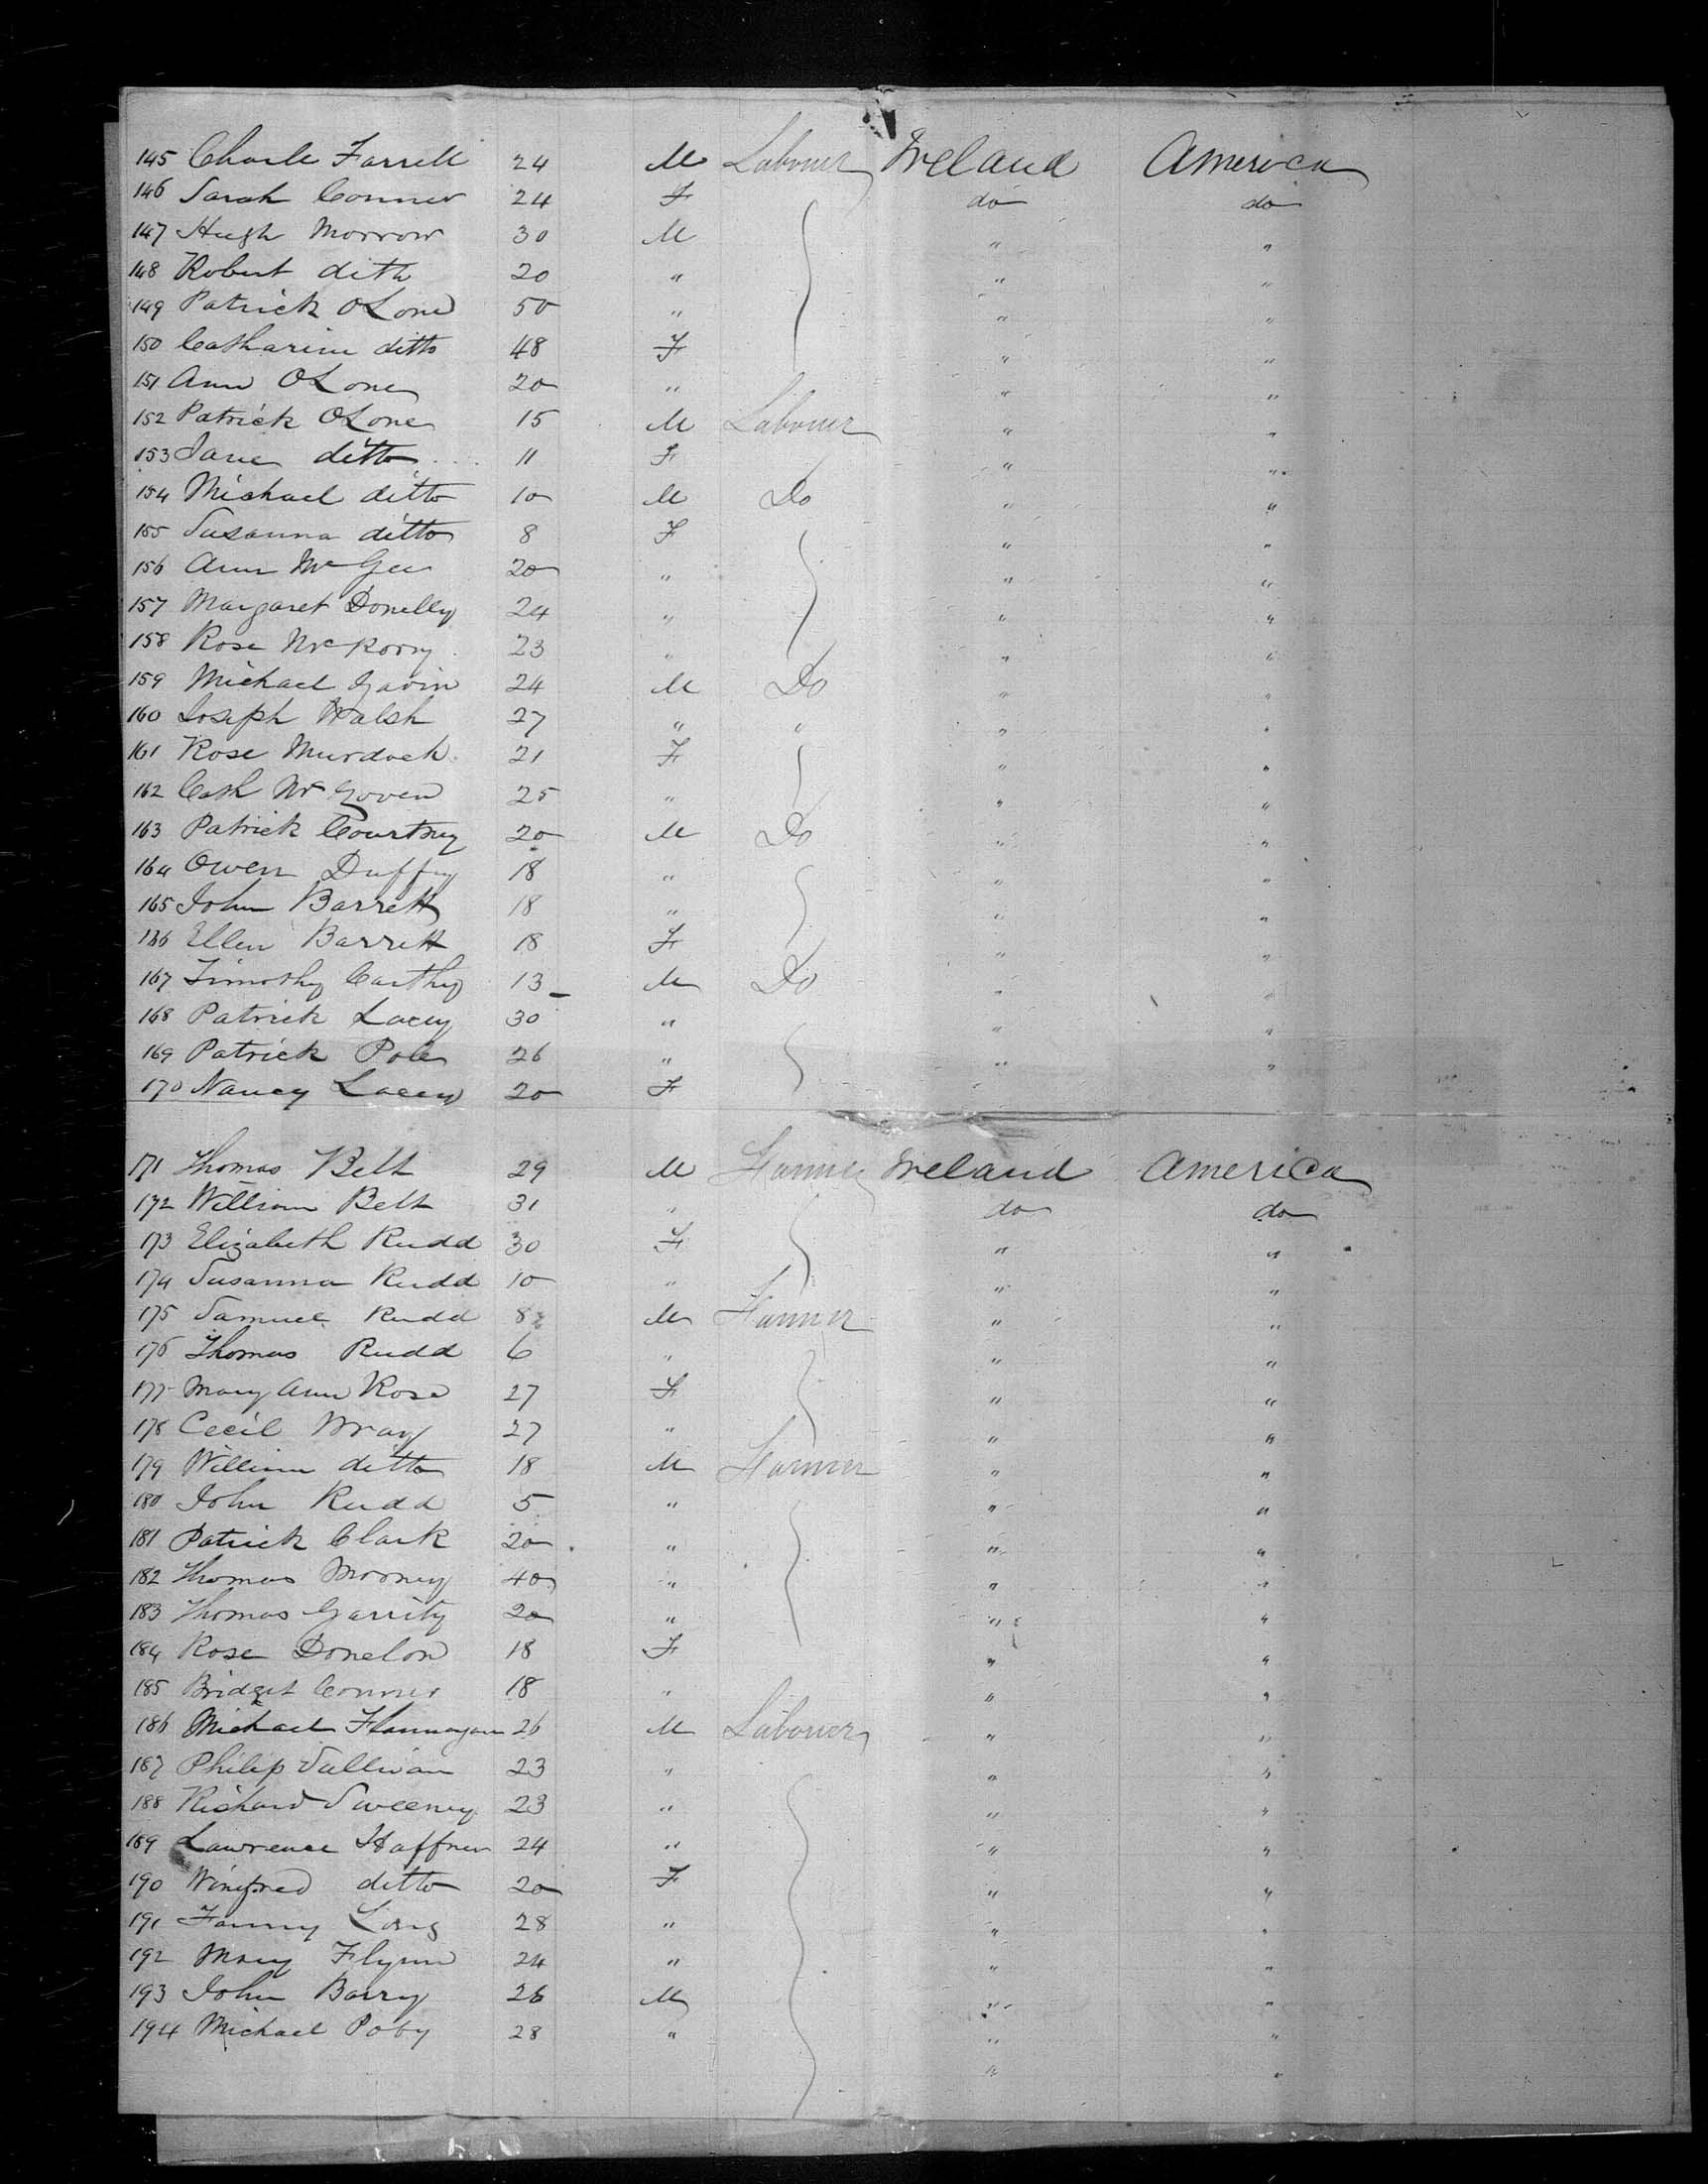 145 Charle Farrell 24 M Labourer Ireland America
146 Sarah Conner 24 F do do
147 Hugh Morrow 30 M " "
148 Robert ditto 20 " " "
149 Patrick OLone 50 " " "
150 Catharine ditto 48 F " "
151 Ann OLone 20 " " "
152 Patrick OLone 15 M Labourer " "
153 Jane ditto 11 F " "
154 Michael ditto 10 M Do " "
155 Susanna ditto 8 F " "
156 Ann McGee 20 " " "
157 Margaret Donelly 24 " " "
158 Rose McRory 23 " " "
159 Michael Gavin 24 M Do " "
160 Joseph Walsh 27 " " " "
161 Rose Murdock 21 F " "
162 Cath McGoven 25 " " "
163 Patrick Courtney 20 M Do " "
164 Owen Duffy 18 " " "
165 John Barrett 18 " " "
166 Ellen Barrett 18 F " "
167 Timothy Carthy 13 M Do " "
168 Patrick Lacey 30 " " "
169 Patrick Pole 26 " " "
170 Nancy Lacey 20 F
171 Thomas Belt 29 M Farmer Ireland America
172 William Belt 31 " do do
173 Elizabeth Rudd 30 F " "
174 Susanna Rudd 10 " " "
175 Samuel Rudd 8 M Farmer " "
176 Thomas Rudd 6 " " "
177 Mary Ann Rose 27 F " "
178 Cecil Wray 27 " " "
179 William ditto 18 M Farmer " "
180 John Rudd 5 " " "
181 Patrick Clark 20 " " "
182 Thomas Mooney 40 " " "
183 Thomas Garrity 20 " " "
184 Rose Donelon 18 F " "
185 Bridget Conner 18 " " "
186 Michael Flannagan 26 M Labourer " "
187 Philip Sullivan 23 " " "
188 Richard Sweeney 23 " " "
189 Lawrence Haffner 24 " " "
190 Winifred ditto 20 F " "
191 Fanny Long 28 " " "
192 Mary Flynn 24 " " "
193 John Barry 26 M " "
194 Michael Poby 28 " " "
" "